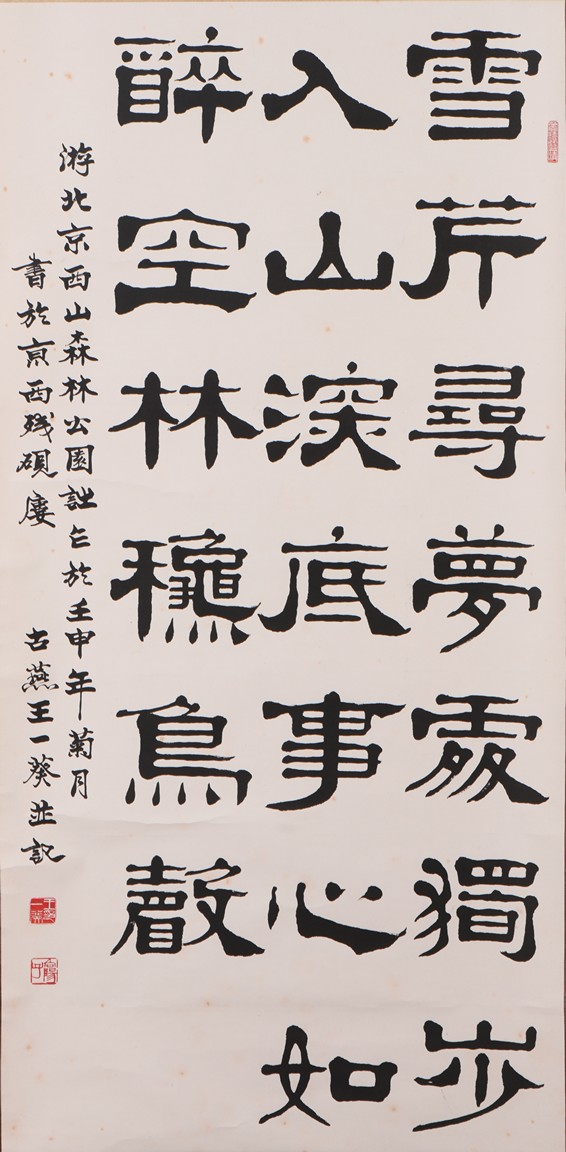 雪芹尋夢處獨步
入山深底事心如
醉空林穐鳥聲
游北京西山森林公園於壬申年菊月
書於京西殘硯廔 古燕王一葵並記